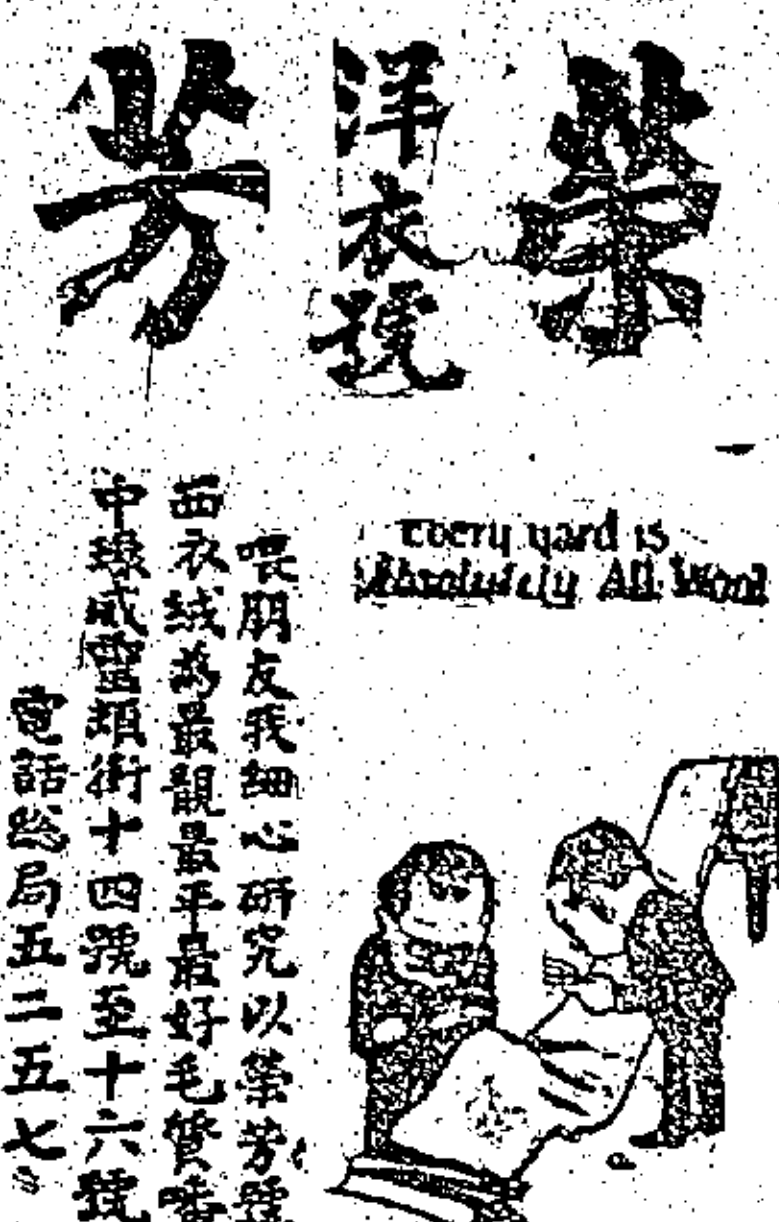 榮芳
洋衣號
Every yard is
Absolutely All Wool
喂朋友我細心研究以榮芳號
西衣絨最靚最平最好毛質
中環威靈頓街十四號至十六號
電話總局五三五七